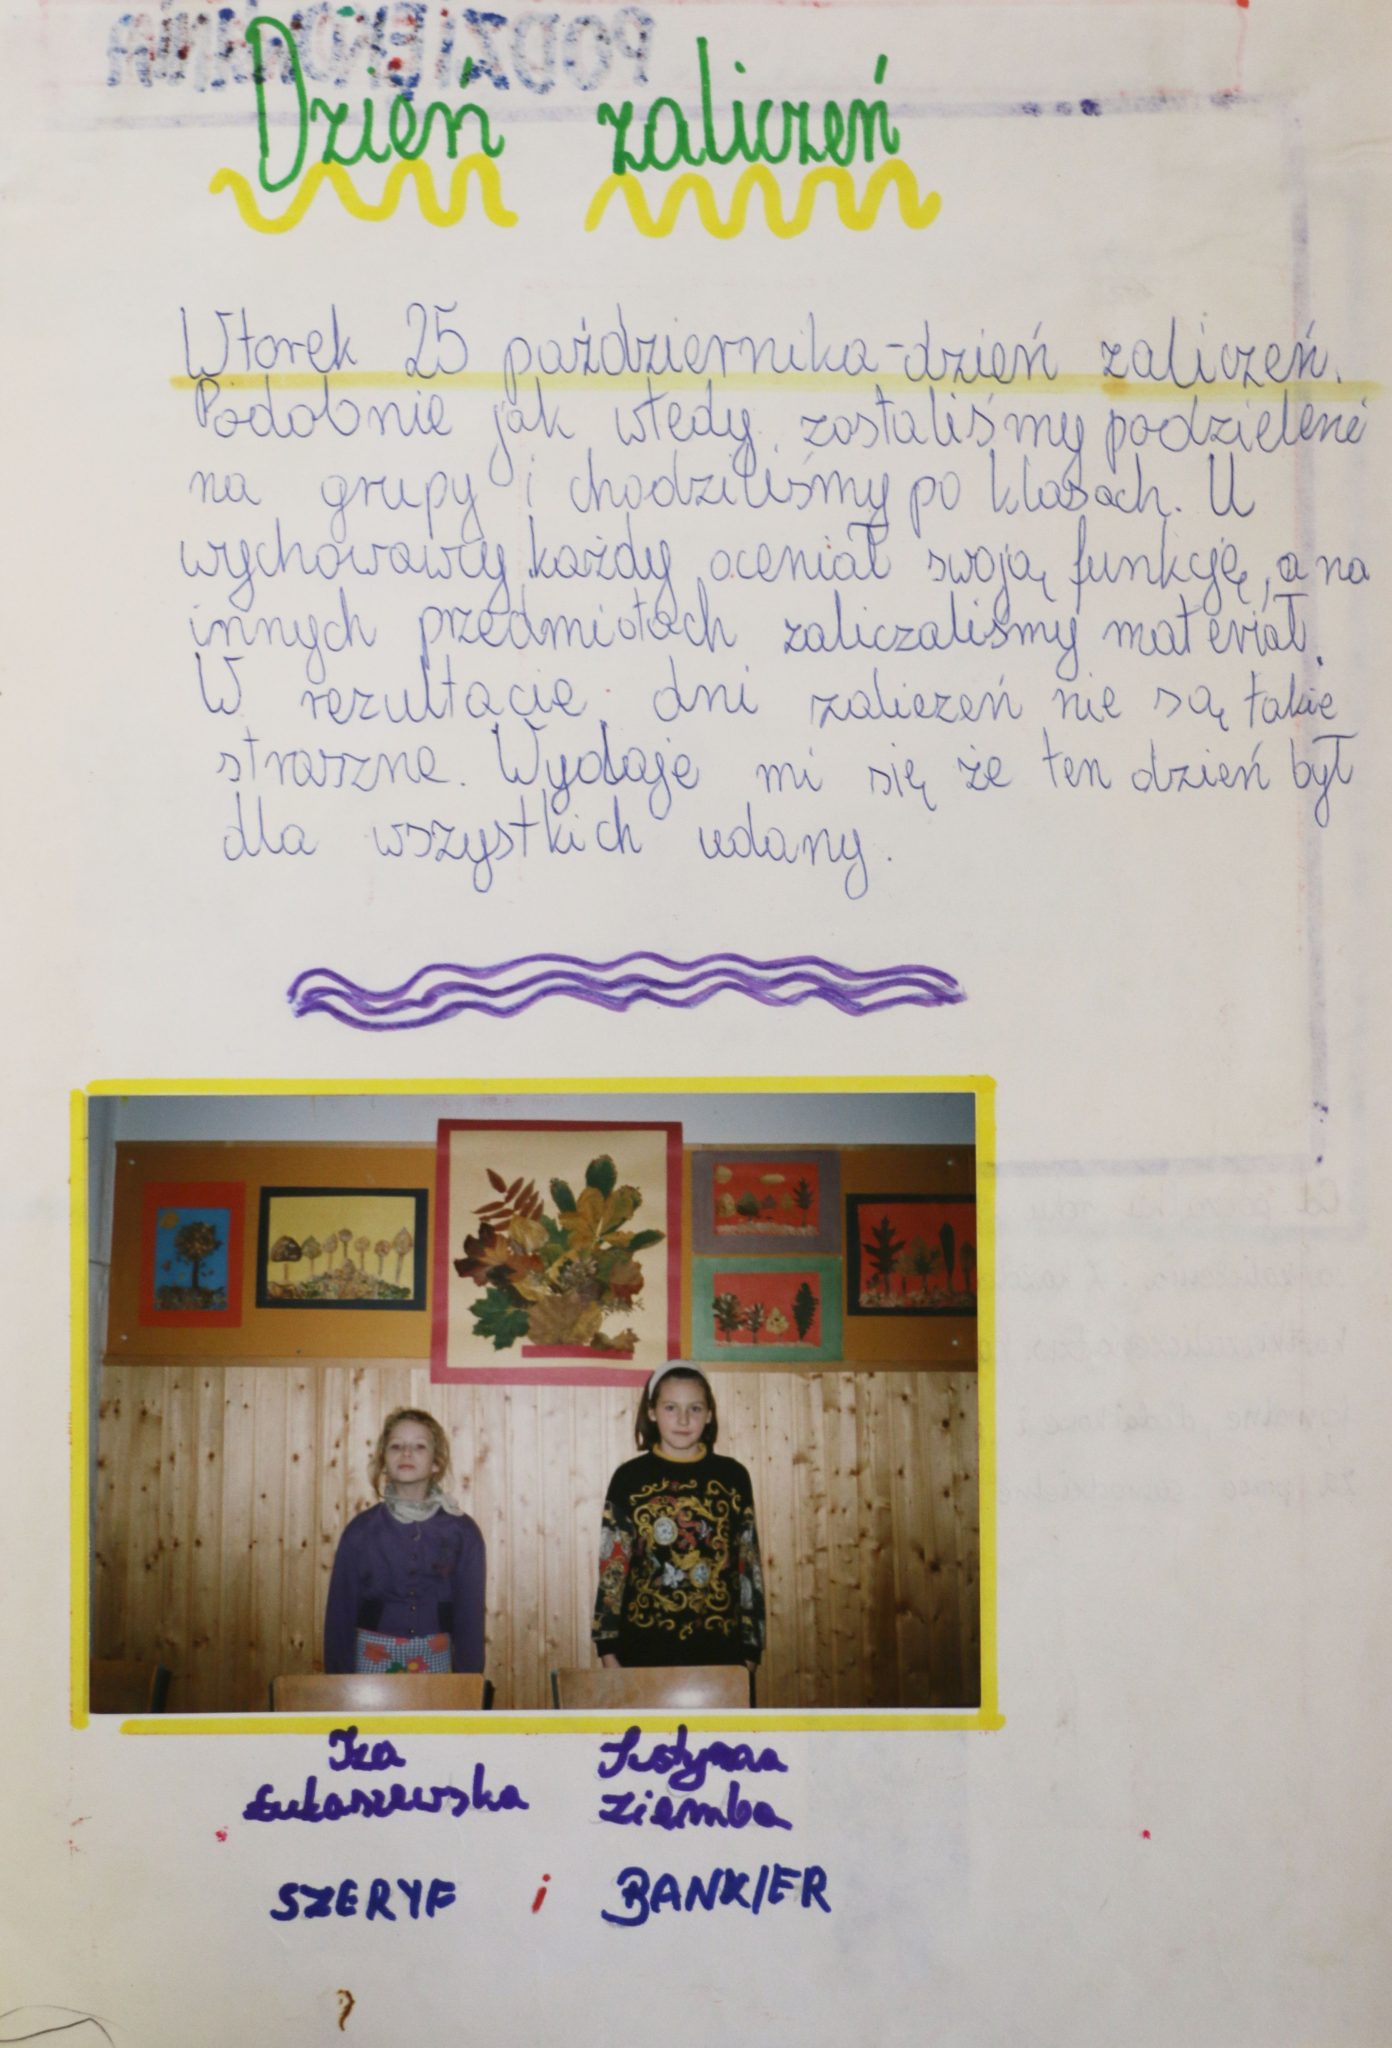 Dzień zaliczeń
Wtorek 25 października - dzień zaliczeń.
Podobnie jak wtedy, zostaliśmy podzieleni
na grupy i chodziliśmy po klasach. U
wychowawcy każdy oceniał swoją funkcję, a na
innych przedmiotach zaliczaliśmy materiał.
W rezultacie, dni zaliczeń nie są takie
straszne. Wydaje mi się że ten dzień był
dla wszystkich udany.
Iza Justyna
Łukaszewska Ziemba
SZERYF i BANKIER